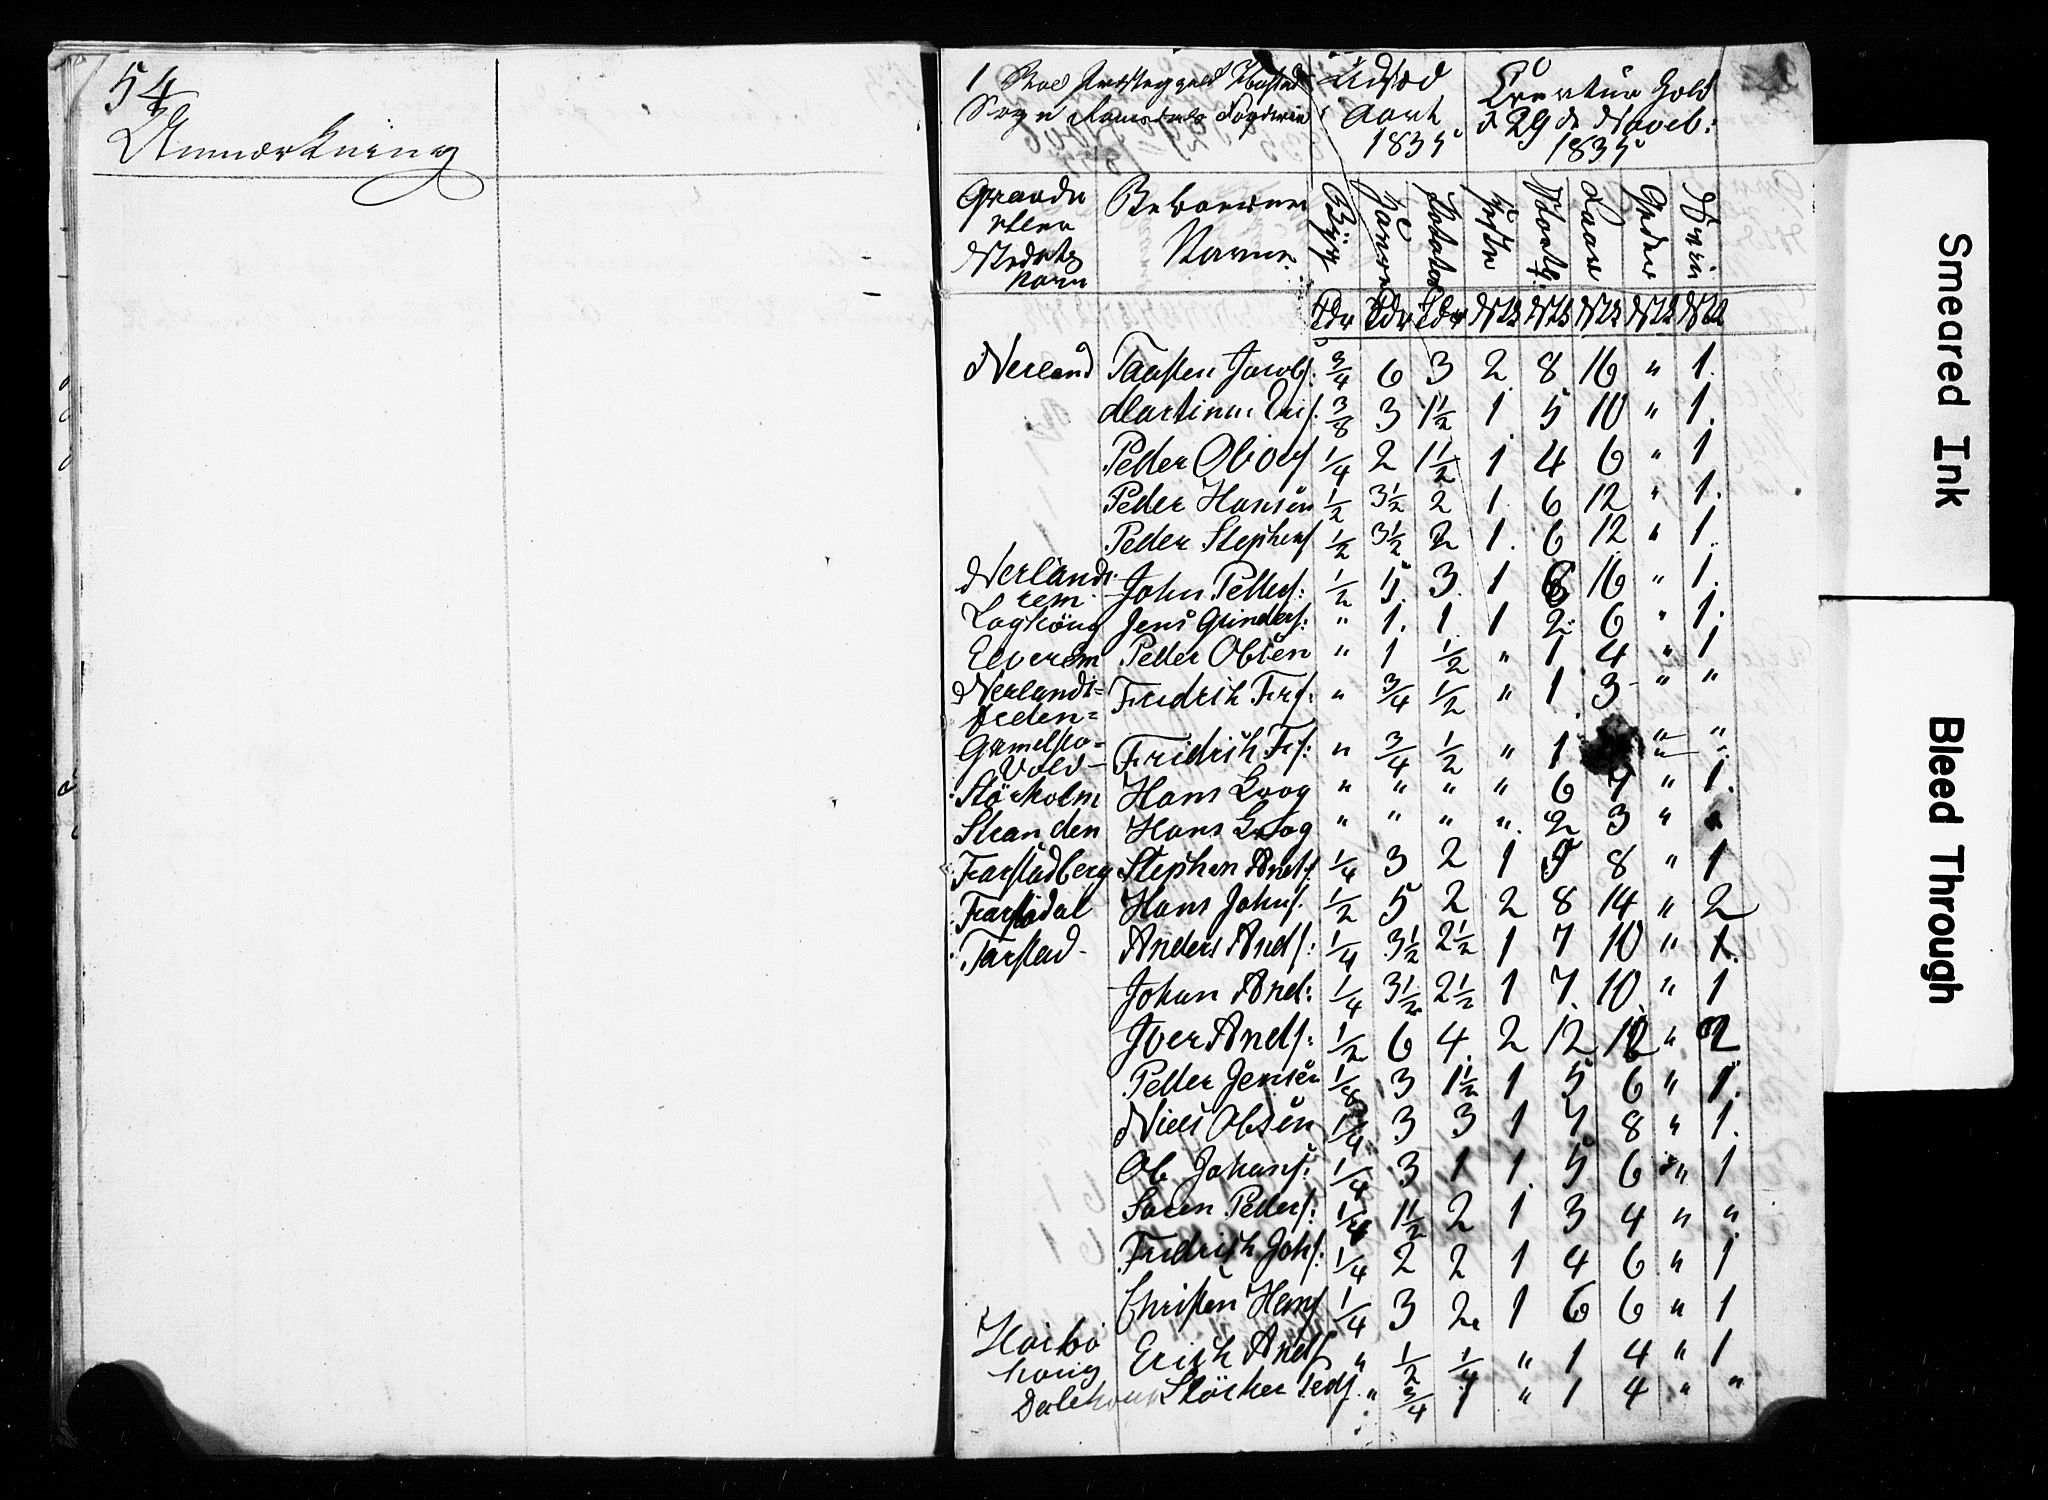 54
Anmærkning
1 Boe Præstegjeld
Sogn Romsdals Fogderie
Udsæd
Aaret
1835
Creatur Hold
d 29 de Noveb:
1835
Gaarde
eller
Stedets
Navn
Beboernes
Navne.
Byg
Havre
Potatos
Heste
Stort Q:
Faare
Geder
Sviin
Tdr Tdr Tdr Stk Stk Stk Stk Stk
Nerland Taasten Jacobs: 3/4 6 3 2 8 16 " 1.
Martinus 3/8 3 1½ 1 5 10 " 1.
Peder Olsen 1/4 2 1½ 1 4 6 " 1
Peder Hansen 1/2 3½ 2 1 6 12 " 1.
Peder Stephens 1/2 3½ 2 1 6 12 " 1.
Nerlands- John Peders: 1/2 5. 3. 1 6 16 " 1.
rem
Jens Gunders: " 1. 1. 1 2 6 " 1.
Elverem Peder Olsen " 1 1/2 " 1 4 " 1
Nerlands= Fredrik Frs: " 3/4 1/2 " 1 3 " "
freden=
Gamelsto= Fridrich Frs: " 3/4 1/2 " 1 " "
Vold-
Störholm Hans Krog " " " " 6 7 " 1.
Stranden Hans Krog " " " " 2 3 "
Farstadberg Stephen Ands 1/4 3 2 1 5 8 " 1
Farstadal Hans Johns. 1/2 5 2 2 8 14 " 2
Farstad- Anders Ands: 1/4 3½ 2½ 1 7 10 " 1.
Johan And: 1/4 3½ 2½ 1 7. 10. " 1
Iver Ands: 1/2 6 4. 2 12 12 " 2
Peder Jensen 1/8 3 1½ 1 5 6 " 1.
Niels Olsen 1/4 3 3 1 7 8 " 1.
Ole Johans: 1/4 3 1 1. 5 6 " 1
Soren Peders: 1/4 1½ 2 1 3 4 " "
Fredrich Joh: 1/4 2 2 1 4 6 " 1
Christen Hans 1/4 3 2 1 6 6 " 1
Erich Ands " 1/2 1/4 " 1 4 " 1
Störker Peds. " 3/4 1 " 1 4 " "
Smeared Ink
Bleed Through